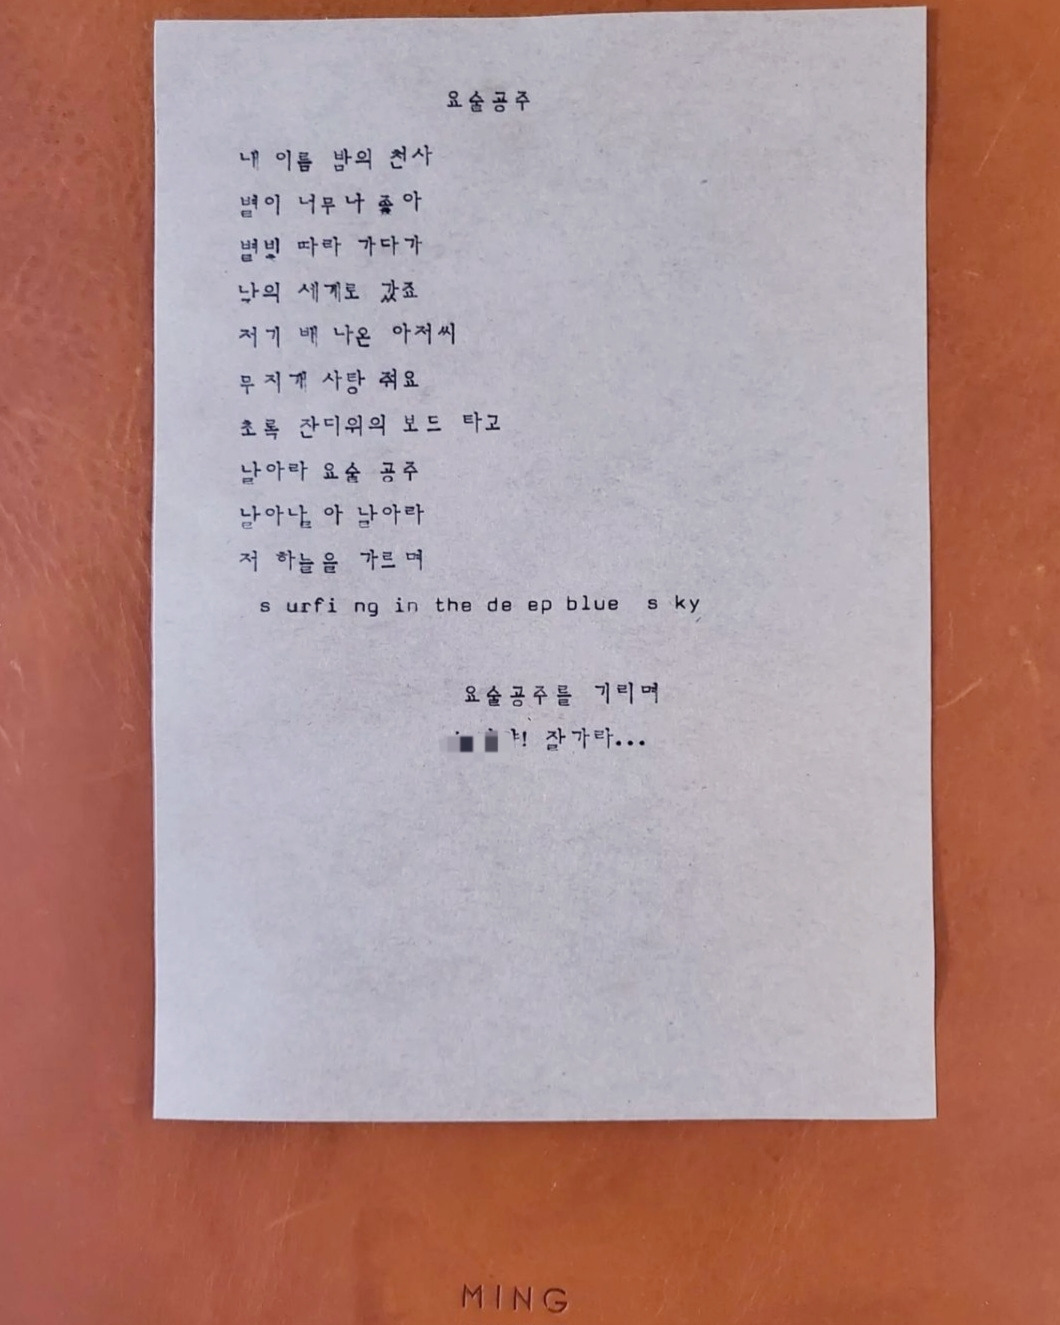 요술공주
내 이름 밤의 천사
별이 너무나 좋아
별빛 따라 가다가
낮의 세계로 갔죠
저기 배 나온 아저씨
무지개 사탕 줘요
초록 잔디위의 보드 타고
날아라 요술 공주
날아날 아 날아라
저 하늘을 가르며
s urfi ng in the de ep blue s ky
요술공주를 기리며
잘가라...
MING